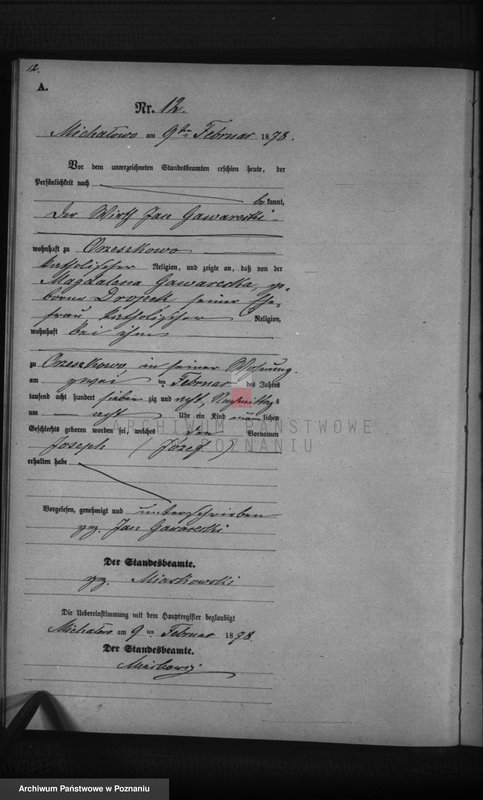 12.
A.
Nr. 12.
Michałowo am 9ten Februar 1878.
Vor dem unterzeichneten Standesbeamten erschien heute, der
Persönlichkeit nach
be kannt,
der Wirth Jan Gawarecki
wohnhaft zu Orzeszkowo
katholischer Religion, und zeigte an, daß von der
Magdalena Gawarecka, ge-
borene Dropek seiner Ehe-
frau katholischer Religion,
wohnhaft bei ihm
zu Orzeszkowo, in seiner Wohnung
am zwei ten Februar des Jahres
tausend acht hundert sieben zig und acht, Nachmittags
um acht Uhr ein Kind männ lichen
Geschlechts geboren worden sei, welches den Vornamen
Joseph (Józef)
erhalten habe
Vorgelesen, genehmigt und unterschrieben
gez. Jan Gawarecki
Der Standesbeamte.
gez. Mieskowski
Die Uebereinstimmung mit dem Hauptregister beglaubigt
Michałowo am 9 ten Februar 1878.
Der Standesbeamte.
ARCHIWUM PAŃSTWOWE
W POZNANIU
Archiwum Państwowe w Poznaniu